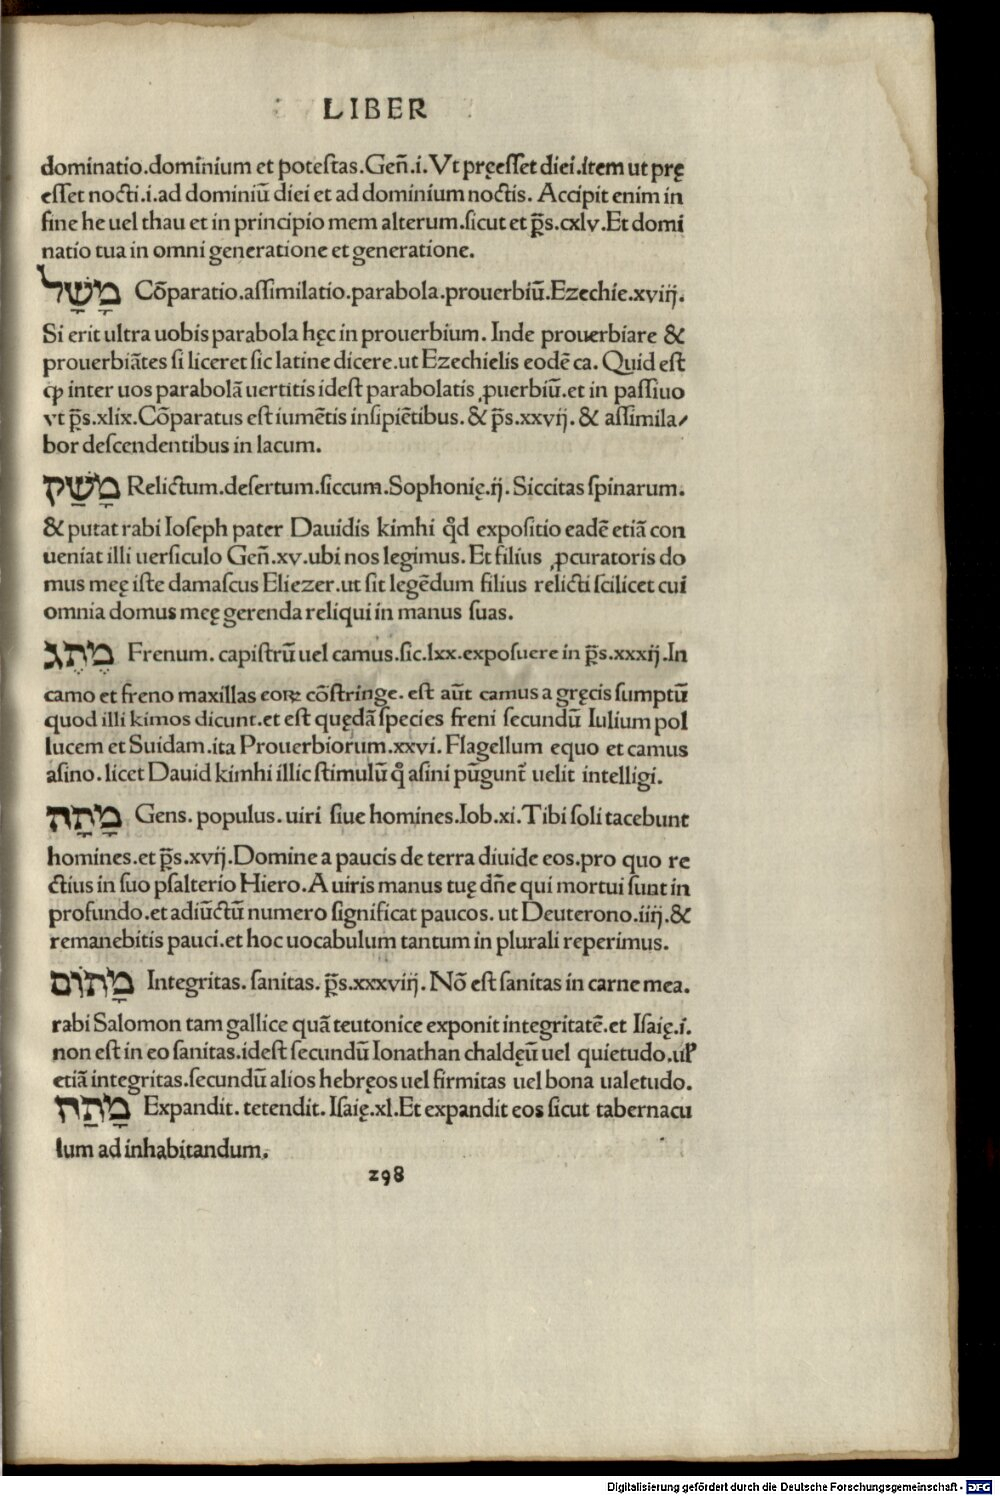 LIBER
dominatio.dominium et potestas.Geñ.i.Vt pręesset diei.item ut prę
esset nocti.i.ad dominiū diei et ad dominium noctis. Accipit enim in
fine he uel thau et in principio mem alterum.sicut et p̄s.cxlv.Et domi
natio tua in omni generatione et generatione.
מָשָׁל Cōparatio.assimilatio.parabola.prouerbiū.Ezechie.xviij.
Si erit ultra uobis parabola hęc in prouerbium. Inde prouerbiare &
prouerbiātes si liceret sic latine dicere.ut Ezechielis eodē ca. Quid est
ꝙ inter uos parabolā uertitis idest parabolatis ꝓuerbiū.et in passiuo
vt p̄s.xlix.Cōparatus est iumētis insipiētibus. & p̄s.xxvij. & assimila/
bor descendentibus in lacum.
מָשַׁק Relictum.desertum.siccum.Sophonię.ij. Siccitas spinarum.
& putat rabi Ioseph pater Dauidis kimhi ꝙd expositio eadē etiā con
ueniat illi uersiculo Geñ.xv.ubi nos legimus. Et filius ꝓcuratoris do
mus meę iste damascus Eliezer.ut sit legēdum filius relicti scilicet cui
omnia domus meę gerenda reliqui in manus suas.
מֶתֶג Frenum. capistrū uel camus.sic.lxx.exposuere in p̄s.xxxij.In
camo et freno maxillas eoꝝ cōstringe. est aūt camus a gręcis sumptū
quod illi kimos dicunt.et est quędā species freni secundū Iulium pol
lucem et Suidam.ita Prouerbiorum.xxvi. Flagellum equo et camus
asino.licet Dauid kimhi illic stimulū ꝙ asini pūgunt̄ uelit intelligi.
מָתָה Gens. populus. uiri siue homines.Iob.xi.Tibi soli tacebunt
homines.et p̄s.xvij.Domine a paucis de terra diuide eos.pro quo re
ctius in suo psalterio Hiero.A uiris manus tuę dn̄e qui mortui sunt in
profundo.et adiūctū numero significat paucos. ut Deuterono.iiij.&
remanebitis pauci.et hoc uocabulum tantum in plurali reperimus.
מָתוֹם Integritas. sanitas. p̄s.xxxviij. Nō est sanitas in carne mea.
rabi Salomon tam gallice quā teutonice exponit integritatē.et Isaię.i.
non est in eo sanitas.idest secundū Ionathan chaldęū uel quietudo.uꝉ
etiā integritas.secundū alios hebręos uel firmitas uel bona ualetudo.
מָתַח Expandit. tetendit. Isaię.xl.Et expandit eos sicut tabernacu
lum ad inhabitandum.
298
Digitalisierung gefördert durch die Deutsche Forschungsgemeinschaft - DFG